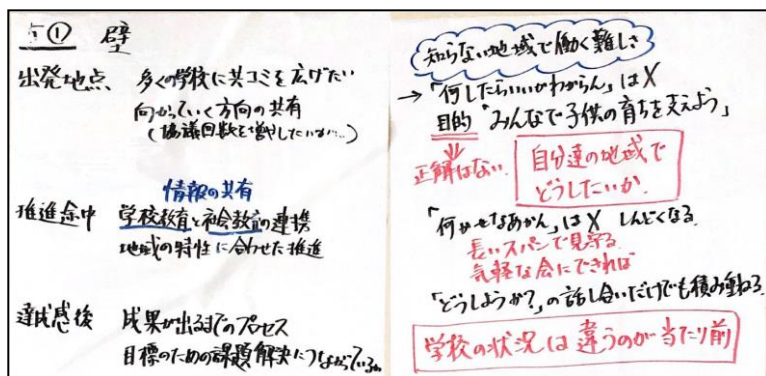 ① 壁
出発地点 多くの学校に共コミを広げたい
向かっていく方向の共有
(協議回数を増やしたいが…)
情報の共有
推進途中 学校教育と社会教育の連携
地域の特性に合わせた推進
達成感後 成果が出るまでのプロセス
目標のための課題解決につながっているか
知らない地域で働く難しさ
→「何したらいいかわからん」は×
目的 "みんなで子供の育ちを支えよう」
正解はない
自分達の地域で
どうしたいか
「何かせなあかん」は× しんどくなる
長いスパンで見守る
気軽な会にできれば
「どうしようか?」の話し合いだけでも積み重ねる
学校の状況は違うのが当たり前